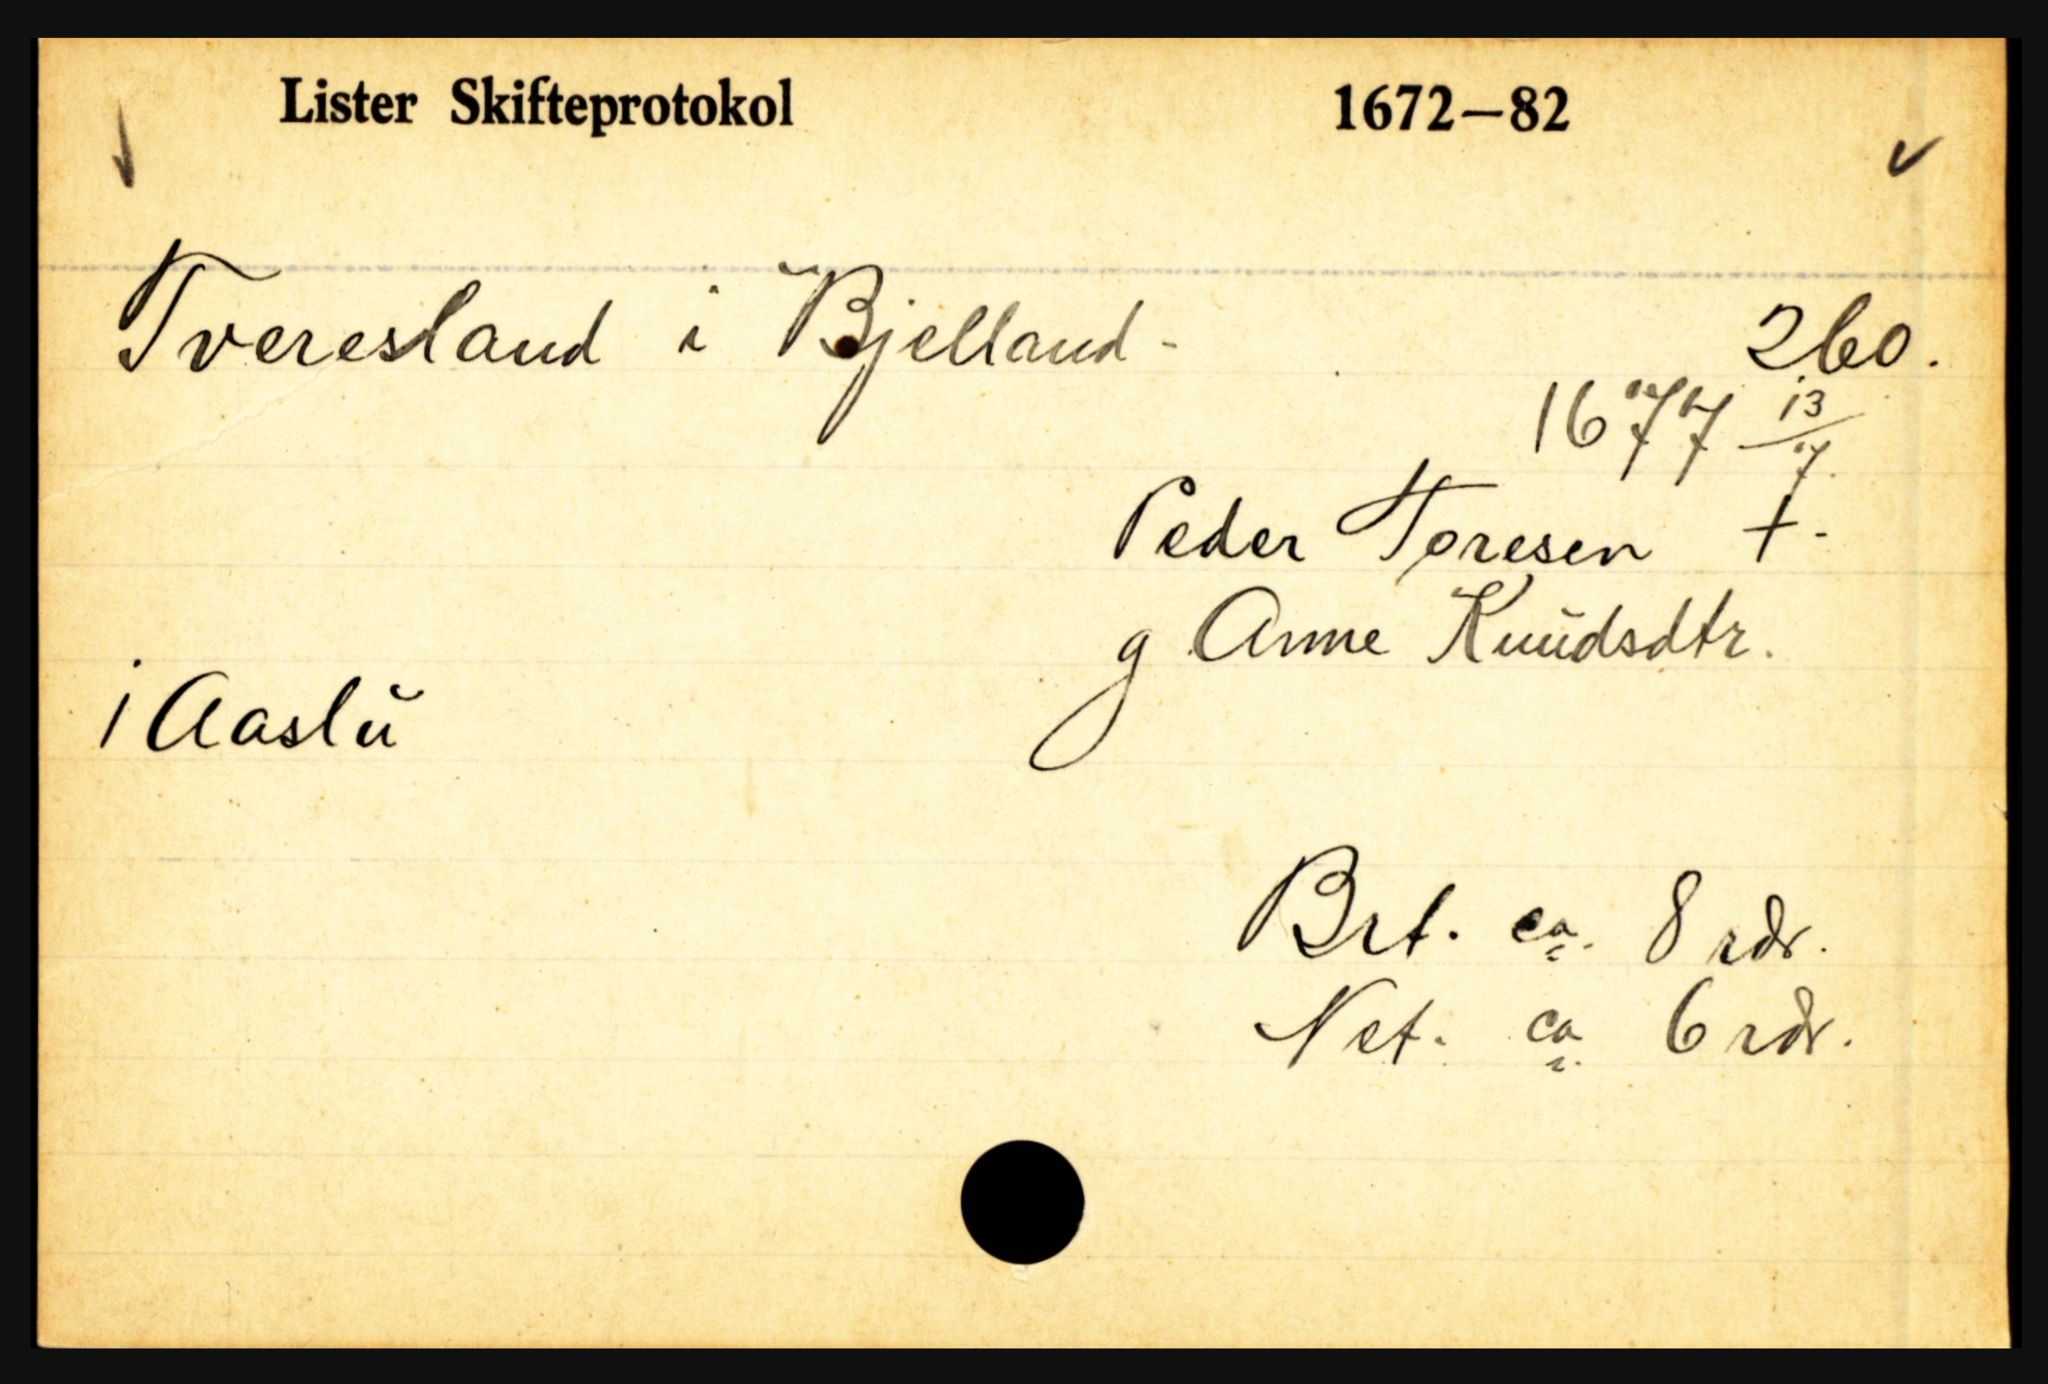 Lister Skifteprotokol 1672–82
Tveresland i Bjelland - 260.
1677 13/7.
Peder Toresen †-
g Anne Knudsdtr.
i Aaslu
Brt. ca. 8 rdr.
Net. ca. 6 rdr.